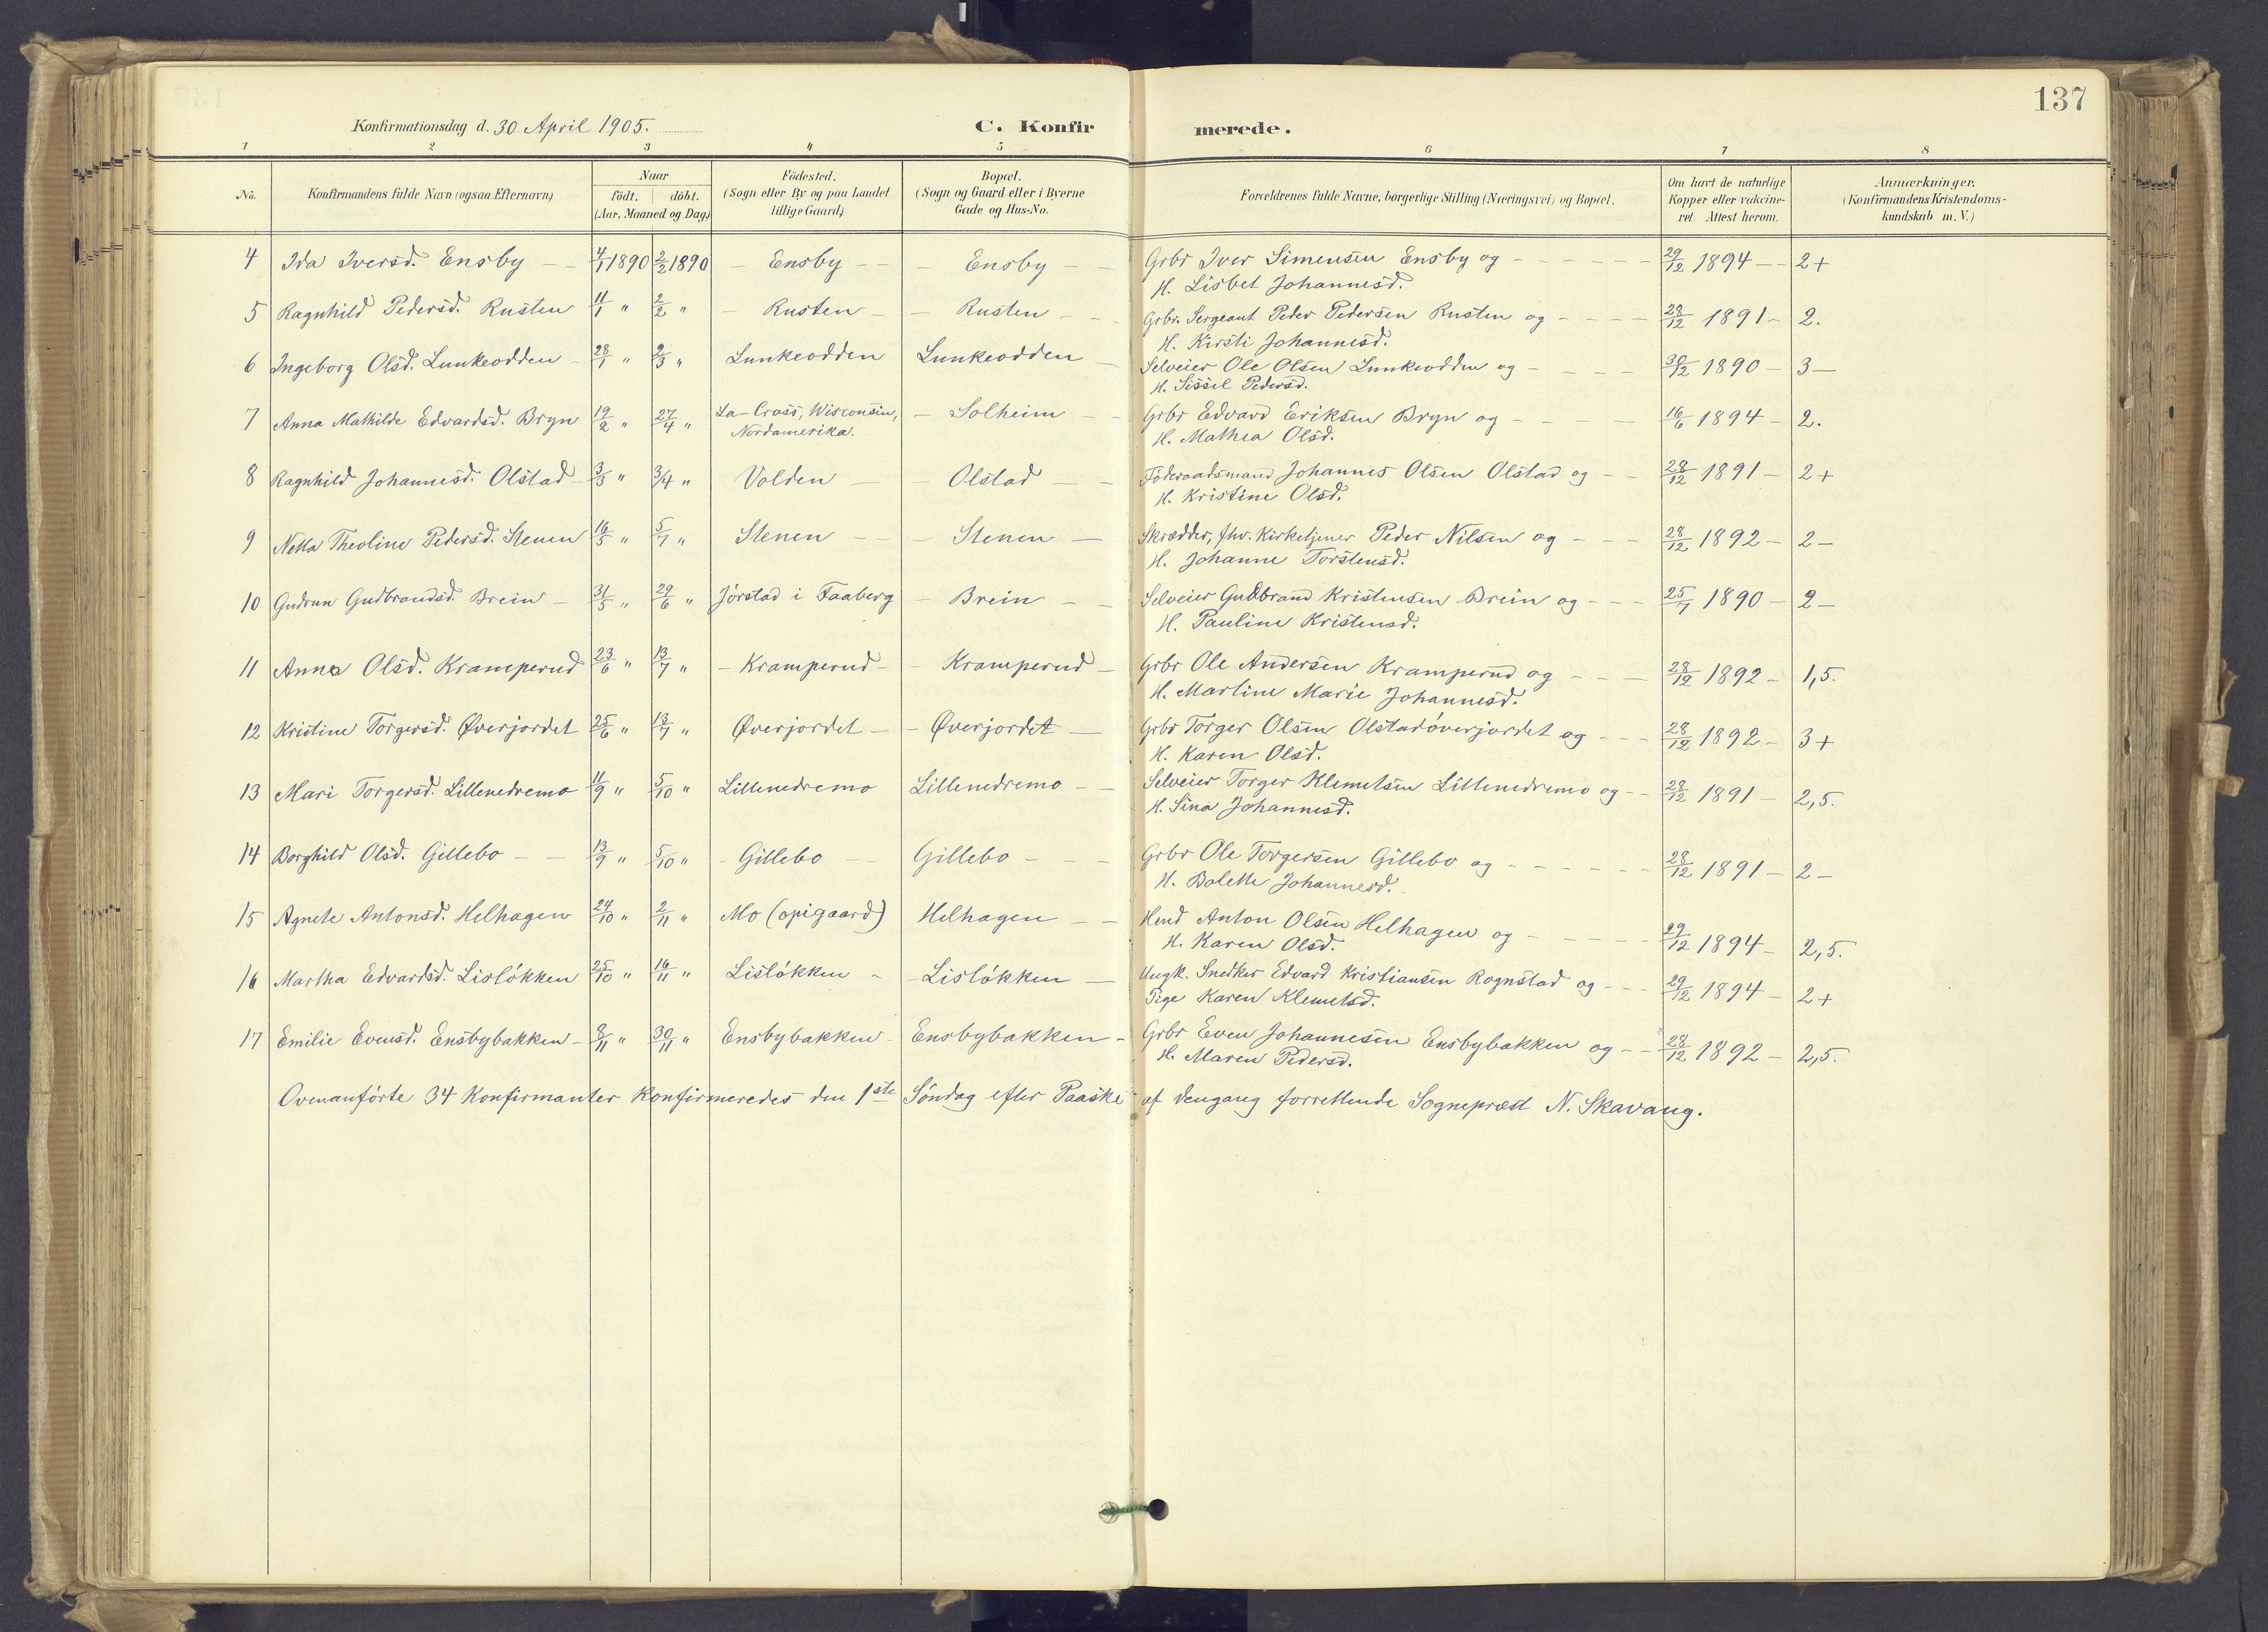 137
Konfirmationsdag d. 30. April 1905.
C. Konfirmerede.
1 2 3 4 5 6 7 8
No.
Konfirmandens fulde Navn (ogsaa Efternavn)
Naar
födt. | döbt.
(Aar, Maaned og Dag)
Födested.
(Sogn eller By og paa Landet
tillige Gaard)
Bopæl.
(Sogn og Gaard eller i Byerne
Gade og Hus-No.
Forældrenes fulde Navne, borgerlige Stilling (Næringsvei) og Bopæl.
Om havt de naturlige
Kopper eller vakcine-
ret. Attest herom.
Anmærkninger.
(Konfirmandens Kristendoms-
kundskab m. V.)
4 Ida Iversd. Ensby 4/1 1890 2/2 1890 Ensby Ensby Grbr Iver Simensen Ensby og 29/12 1894 2+
H. Lisbet Johannesd.
5 Ragnhild Pedersd. Rusten 11/1 " 2/2 " Rusten Rusten Grbr. Sergeant Peder Pedersen Rusten og 28/12 1891 2.
H. Kirsti Johannesd.
6 Ingeborg Olsd. Lunkeodden 28/1 " 2/3 " Lunkeodden Lunkeodden Selveier Ole Olsen Lunkeodden og 30/12 1890 3-
H. Sissel Pedersd.
7 Anna Mathilde Edvardsd. Bryn 19/2 " 27/4 " La-Cross, Wisconsin, Solheim Grbr Edvard Eriksen Bryn og 16/6 1894 2.
Nordamerika. H. Mathea Olsd.
8 Ragnhild Johannesd. Olstad 3/3 " 3/4 " Volden Olstad Föderaadsmand Johannes Olsen Olstad og 28/12 1891 2+
H. Kristine Olsd.
9 Netta Theoline Pedersd. Stenen 16/5 " 5/7 " Stenen Stenen Skrædder, fhv. Kirketjener Peder Nilsen og 28/12 1892 2-
H. Johanne Torstensd.
10 Gudrun Gudbrandsd. Brein 31/5 " 29/6 " Jörstad i Faaberg Brein Selveier Gudbrand Kristensen Brein og 25/7 1890 2-
H. Pauline Kristensd.
11 Anna Olsd. Kramperud 23/6 " 13/7 " Kramperud Kramperud Grbr Ole Andersen Kramperud og 28/12 1892 1,5.
H. Martine Marie Johannesd.
12 Kristine Torgersd. Øverjordet 25/6 " 13/7 " Øverjordet Øverjordet Grbr Torger Olsen Olstadöverjordet og 28/12 1892 3+
H. Karen Olsd.
13 Mari Torgersd. Lillenedremo 11/9 " 5/10 " Lillenedremo Lillenedremo Selveier Torger Klemetsen Lillenedremo og 28/12 1891 2,5.
H. Sina Johannesd.
14 Borghild Olsd. Gillebo 13/9 " 5/10 " Gillebo Gillebo Grbr Ole Torgersen Gillebo og 28/12 1891 2-
H. Bolette Johannesd.
15 Agnete Antonsd. Helhagen 24/10 " 2/11 " Mo (opigaard) Helhagen Hmd Anton Olsen Helhagen og 29/12 1894 2,5.
H. Karen Olsd.
16 Martha Edvardsd. Lislökken 25/10 " 16/11 " Lislökken Lislökken Ungk. Snedker Edvard Kristiansen Rognstad og 29/12 1894 2+
Pige Karen Klemetsd.
17 Emilie Evensd. Ensbybakken 8/11 " 30/11 " Ensbybakken Ensbybakken Grbr Even Johannesen Ensbybakken og 28/12 1892 2,5.
H. Maren Pedersd.
Ovenanförte 34 Konfirmanter konfirmeredes den 1ste Söndag efter Paaske af dengang forrettende Sogneprest N. Skavang.